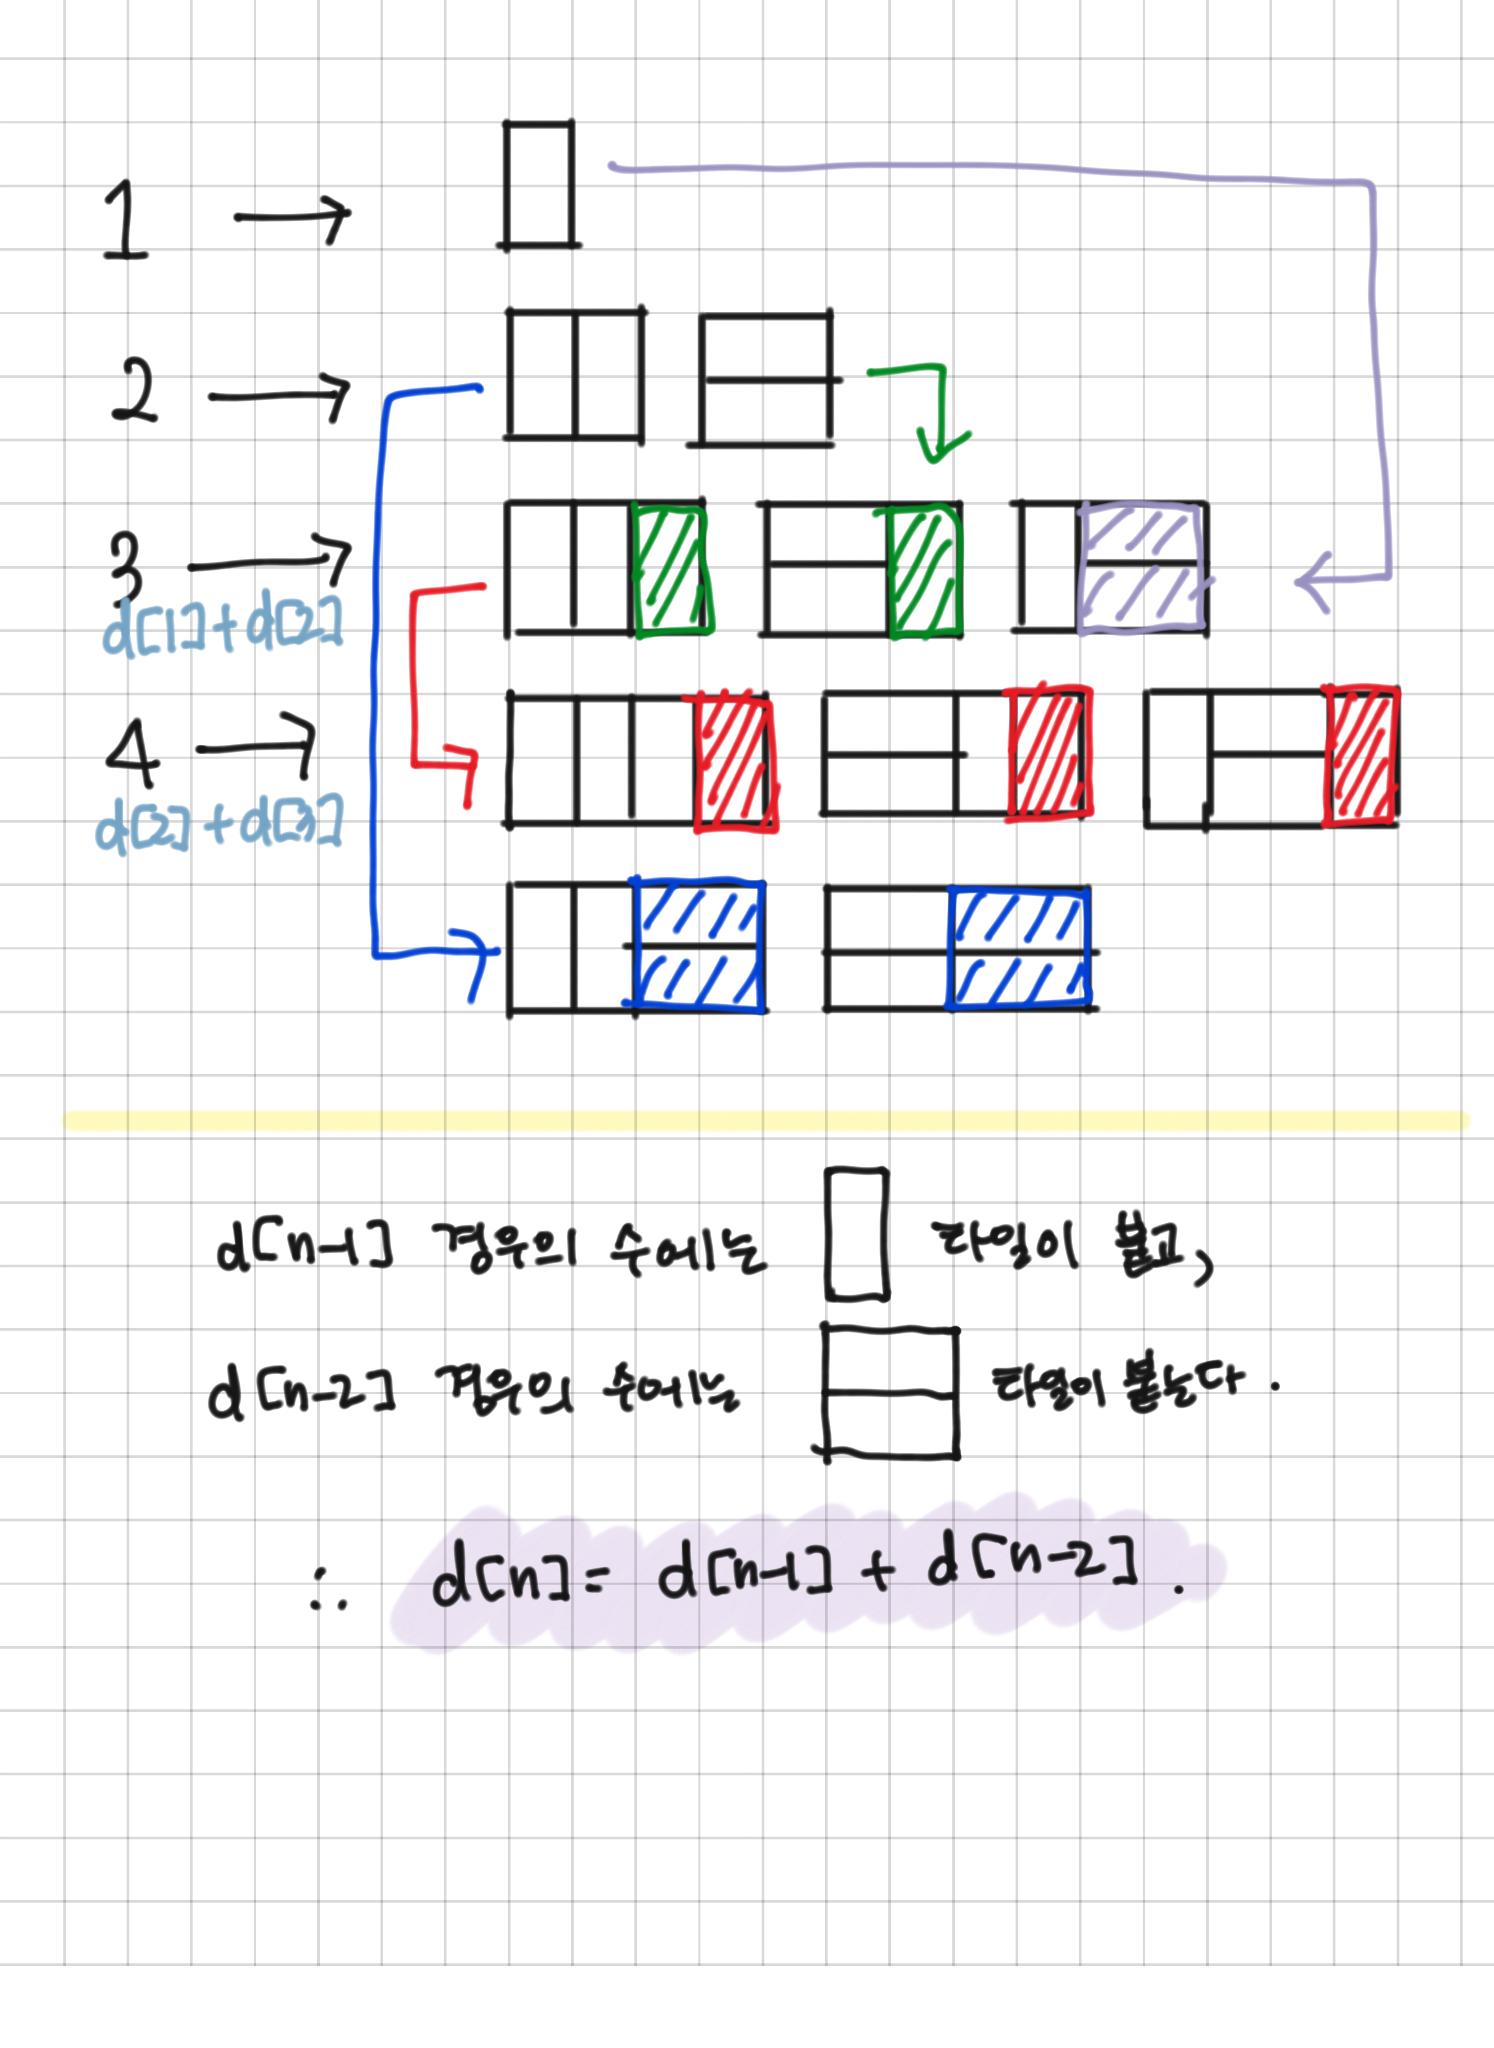 1 →
2 →
3 →
d[1]+d[2]
4 →
d[2]+d[3]
d[n-1] 경우의 수에는 타일이 붙고,
d[n-2] 경우의 수에는 타일이 붙는다.
∴ d[n] = d[n-1] + d[n-2].